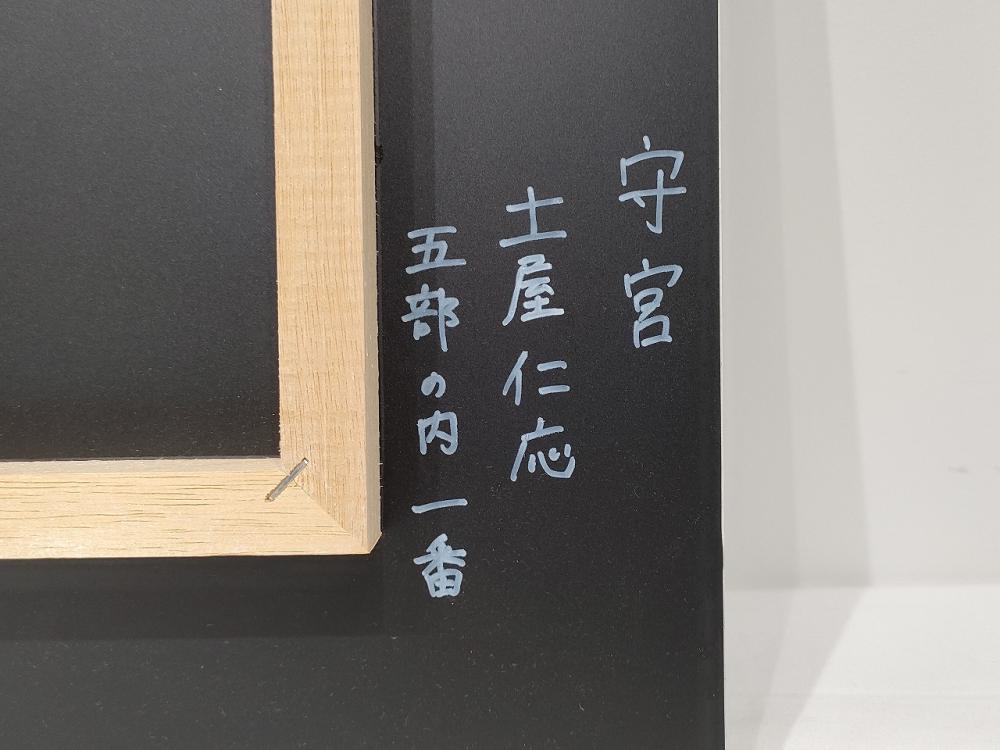 守宮
土屋仁応
五部の内 一番